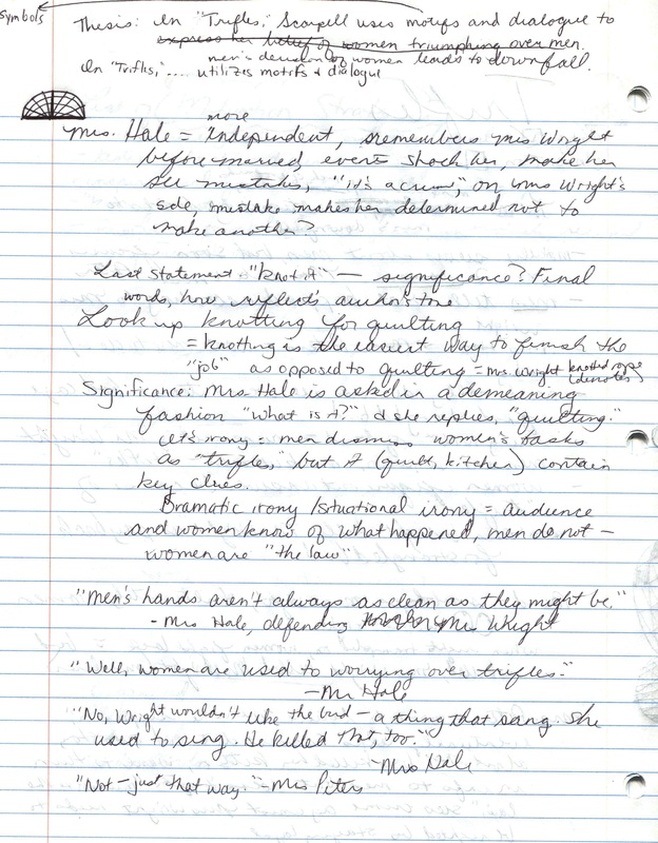 symbols
Thesis: In "Trifles," Scarpell uses motifs and dialogue to
express her belief of women triumphing over men.
men's derision of women leads to downfall.
In "Trifles,".... utilizes motifs + dialogue
more
Mrs. Hale = independent, remembers Mrs Wright
before married, events shock her, make her
see mistakes, "it's a crime," on Mrs Wright's
side, mistake makes her determined not to
make another?
Last statement: "knot it" — significance? Final
words, how reflects author's tone
Look up knotting for quilting
= knotting is the easiest way to finish the
"job" as opposed to quilting = Mrs. Wright knotted rope
(denotes)
Significance: Mrs. Hale is asked in a demeaning
fashion "What is it?" & she replies, "quilting."
Let's irony = men dismiss women's tasks
as "trifles," but it (quilt, kitchen) contain
key clues.
Dramatic irony / situational irony = audience
and women know of what happened, men do not —
women are "the law"
"Men's hands aren't always as clean as they might be."
- Mrs Hale, defending Mrs Wright
"Well, women are used to worrying over trifles."
- Mr Hale
"No, Wright wouldn't like the bird — a thing that sang. She
used to sing. He killed that, too."
- Mrs Hale
"Not — just that way." - Mrs Peters